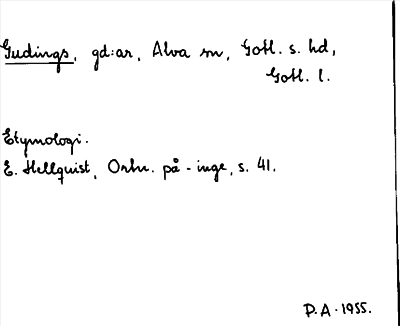 Gudings, gd:ar, Alva sn, Gotl. s. hd,
Gotl. l.
Etymologi.
E. Hellquist, Ortn. på -inge, s. 41.
P.A. 1955.